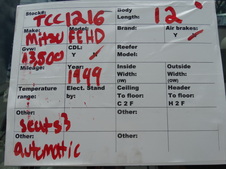 Stock#: TCC1216 Body Length: 12'
Make: Mitsu Model: FEHD Brand: Air brakes: Y
Gvw: 13,500 CDL: Y Reefer Model:
Mileage: Year: 1999 Inside Width: (IW) Outside Width: (OW)
Temperature range: Elect. Stand by: Ceiling To floor: C 2 F Header To floor: H 2 F
Other: seats 3
Other: automatic